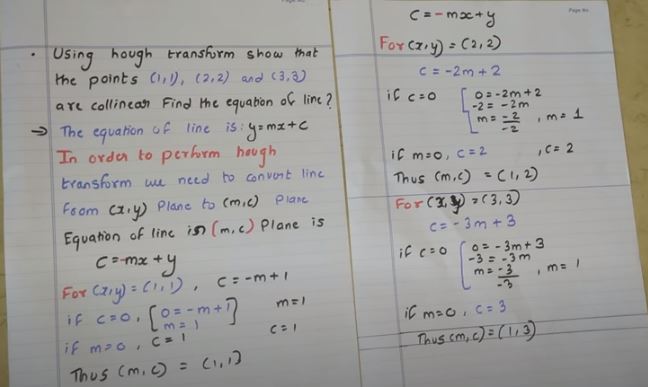 Using hough transform show that
the points (1,1), (2,2) and (3,3)
are collinear Find the equation of line?
→ The equation of line is: y=mx+c
In order to perform hough
transform we need to convert line
from (x,y) Plane to (m,c) Plane
Equation of line is (m,c) Plane is
C=-mx+y
For (x,y) = (1,1), C=-m+1
if c=0, [0=-m+1 m=1
m=1]
if m=0, c=1 c=1
Thus (m,c) = (1,1)
C=-mx+y
For (x,y) = (2,2)
C=-2m+2
if c=0 [0=-2m+2
-2=-2m
m=-2/-2, m=1
if m=0, c=2, c=2
Thus (m,c) = (1,2)
For (x,y) = (3,3)
C=-3m+3
if c=0 [0=-3m+3
-3=-3m
m=-3/-3, m=1
if m=0, c=3
Thus (m,c) = (1,3)